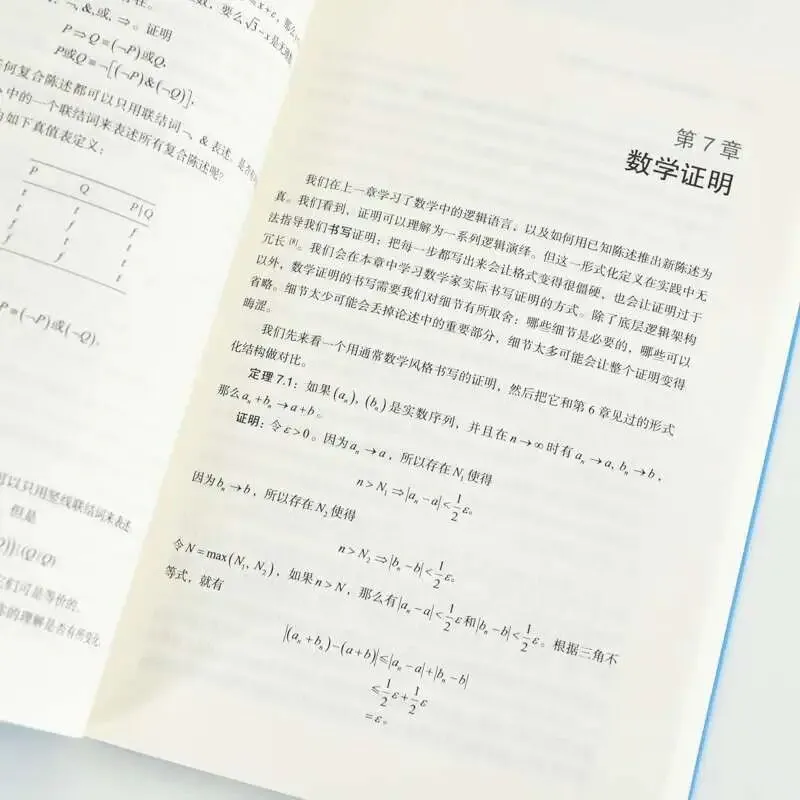 数, 要么√3−x是无理
¬, &, 或, ⇒。证明
P⇒Q≡(¬P)或Q,
P或Q≡¬[(¬P)&(¬Q)],
何复合陈述都可以只用联结词¬, &表述, 是否
中的一个联结词来表述所有复合陈述呢?
如下真值表定义:
P Q P|Q
t t f
t f t
f t t
f f t
P≡(¬P)或(¬Q)。
可以只用竖线联结词来表述
但是
它们可是等价的
的理解是否有所变化
第 7 章
数学证明
我们在上一章学习了数学中的逻辑语言, 以及如何用已知陈述推出新陈述为
真。我们看到, 证明可以理解为一系列逻辑演绎。但这一形式化定义在实践中无
法指导我们书写证明: 把每一步都写出来会让格式变得很僵硬, 也会让证明过于
冗长[8]。我们会在本章中学习数学家实际书写证明的方式。除了底层逻辑架构
以外, 数学证明的书写需要我们对细节有所取舍: 哪些细节是必要的, 哪些可以
省略。细节太少可能会丢掉论述中的重要部分, 细节太多可能会让整个证明变得
晦涩。
我们先来看一个用通常数学风格书写的证明, 然后把它和第 6 章见过的形式
化结构做对比。
定理 7.1: 如果(aₙ), (bₙ)是实数序列, 并且在 n→∞时有 aₙ→a, bₙ→b,
那么 aₙ+bₙ→a+b。
证明: 令 ε>0。因为 aₙ→a, 所以存在 N₁使得
n>N₁⇒|aₙ−a|<1/2 ε。
因为 bₙ→b, 所以存在 N₂使得
n>N₂⇒|bₙ−b|<1/2 ε。
令 N=max(N₁, N₂), 如果 n>N, 那么有|aₙ−a|<1/2 ε和|bₙ−b|<1/2 ε。根据三角不
等式, 就有
|(aₙ+bₙ)−(a+b)|≤|aₙ−a|+|bₙ−b|
≤1/2 ε+1/2 ε
=ε。